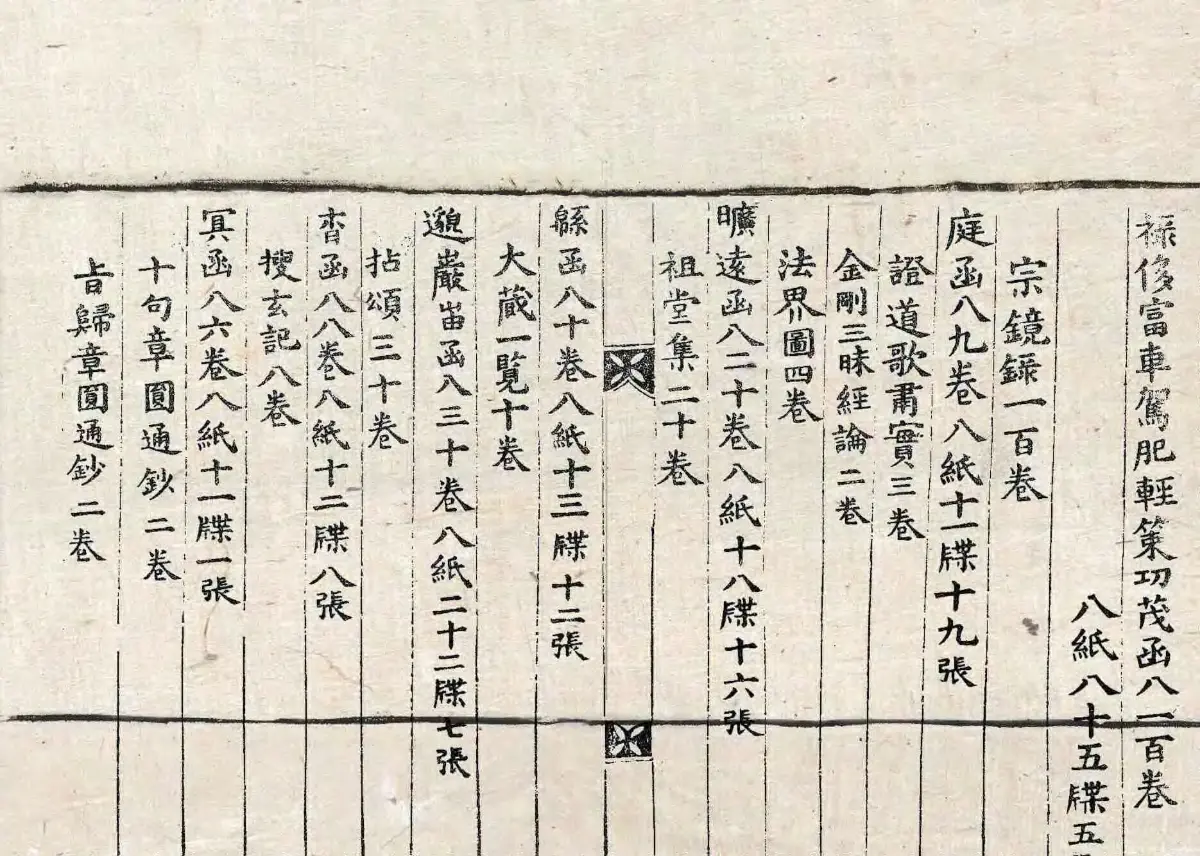 祿侈富車駕肥輕策功茂函入一百卷
入紙八十五牒五
宗鏡錄一百卷
庭函入九卷入紙十一牒十九張
證道歌肅實三卷
金剛三昧經論二卷
法界圖四卷
曠遠函入二十卷入紙十八牒十六張
祖堂集二十卷
緜函入十卷入紙十三牒十二張
大藏一覽十卷
邈巖峀函入三十卷入紙二十二牒七張
拈頌三十卷
杳函入八卷入紙十二牒八張
搜玄記八卷
冥函入六卷入紙十一牒一張
十句章圓通鈔二卷
旨歸章圓通鈔二卷